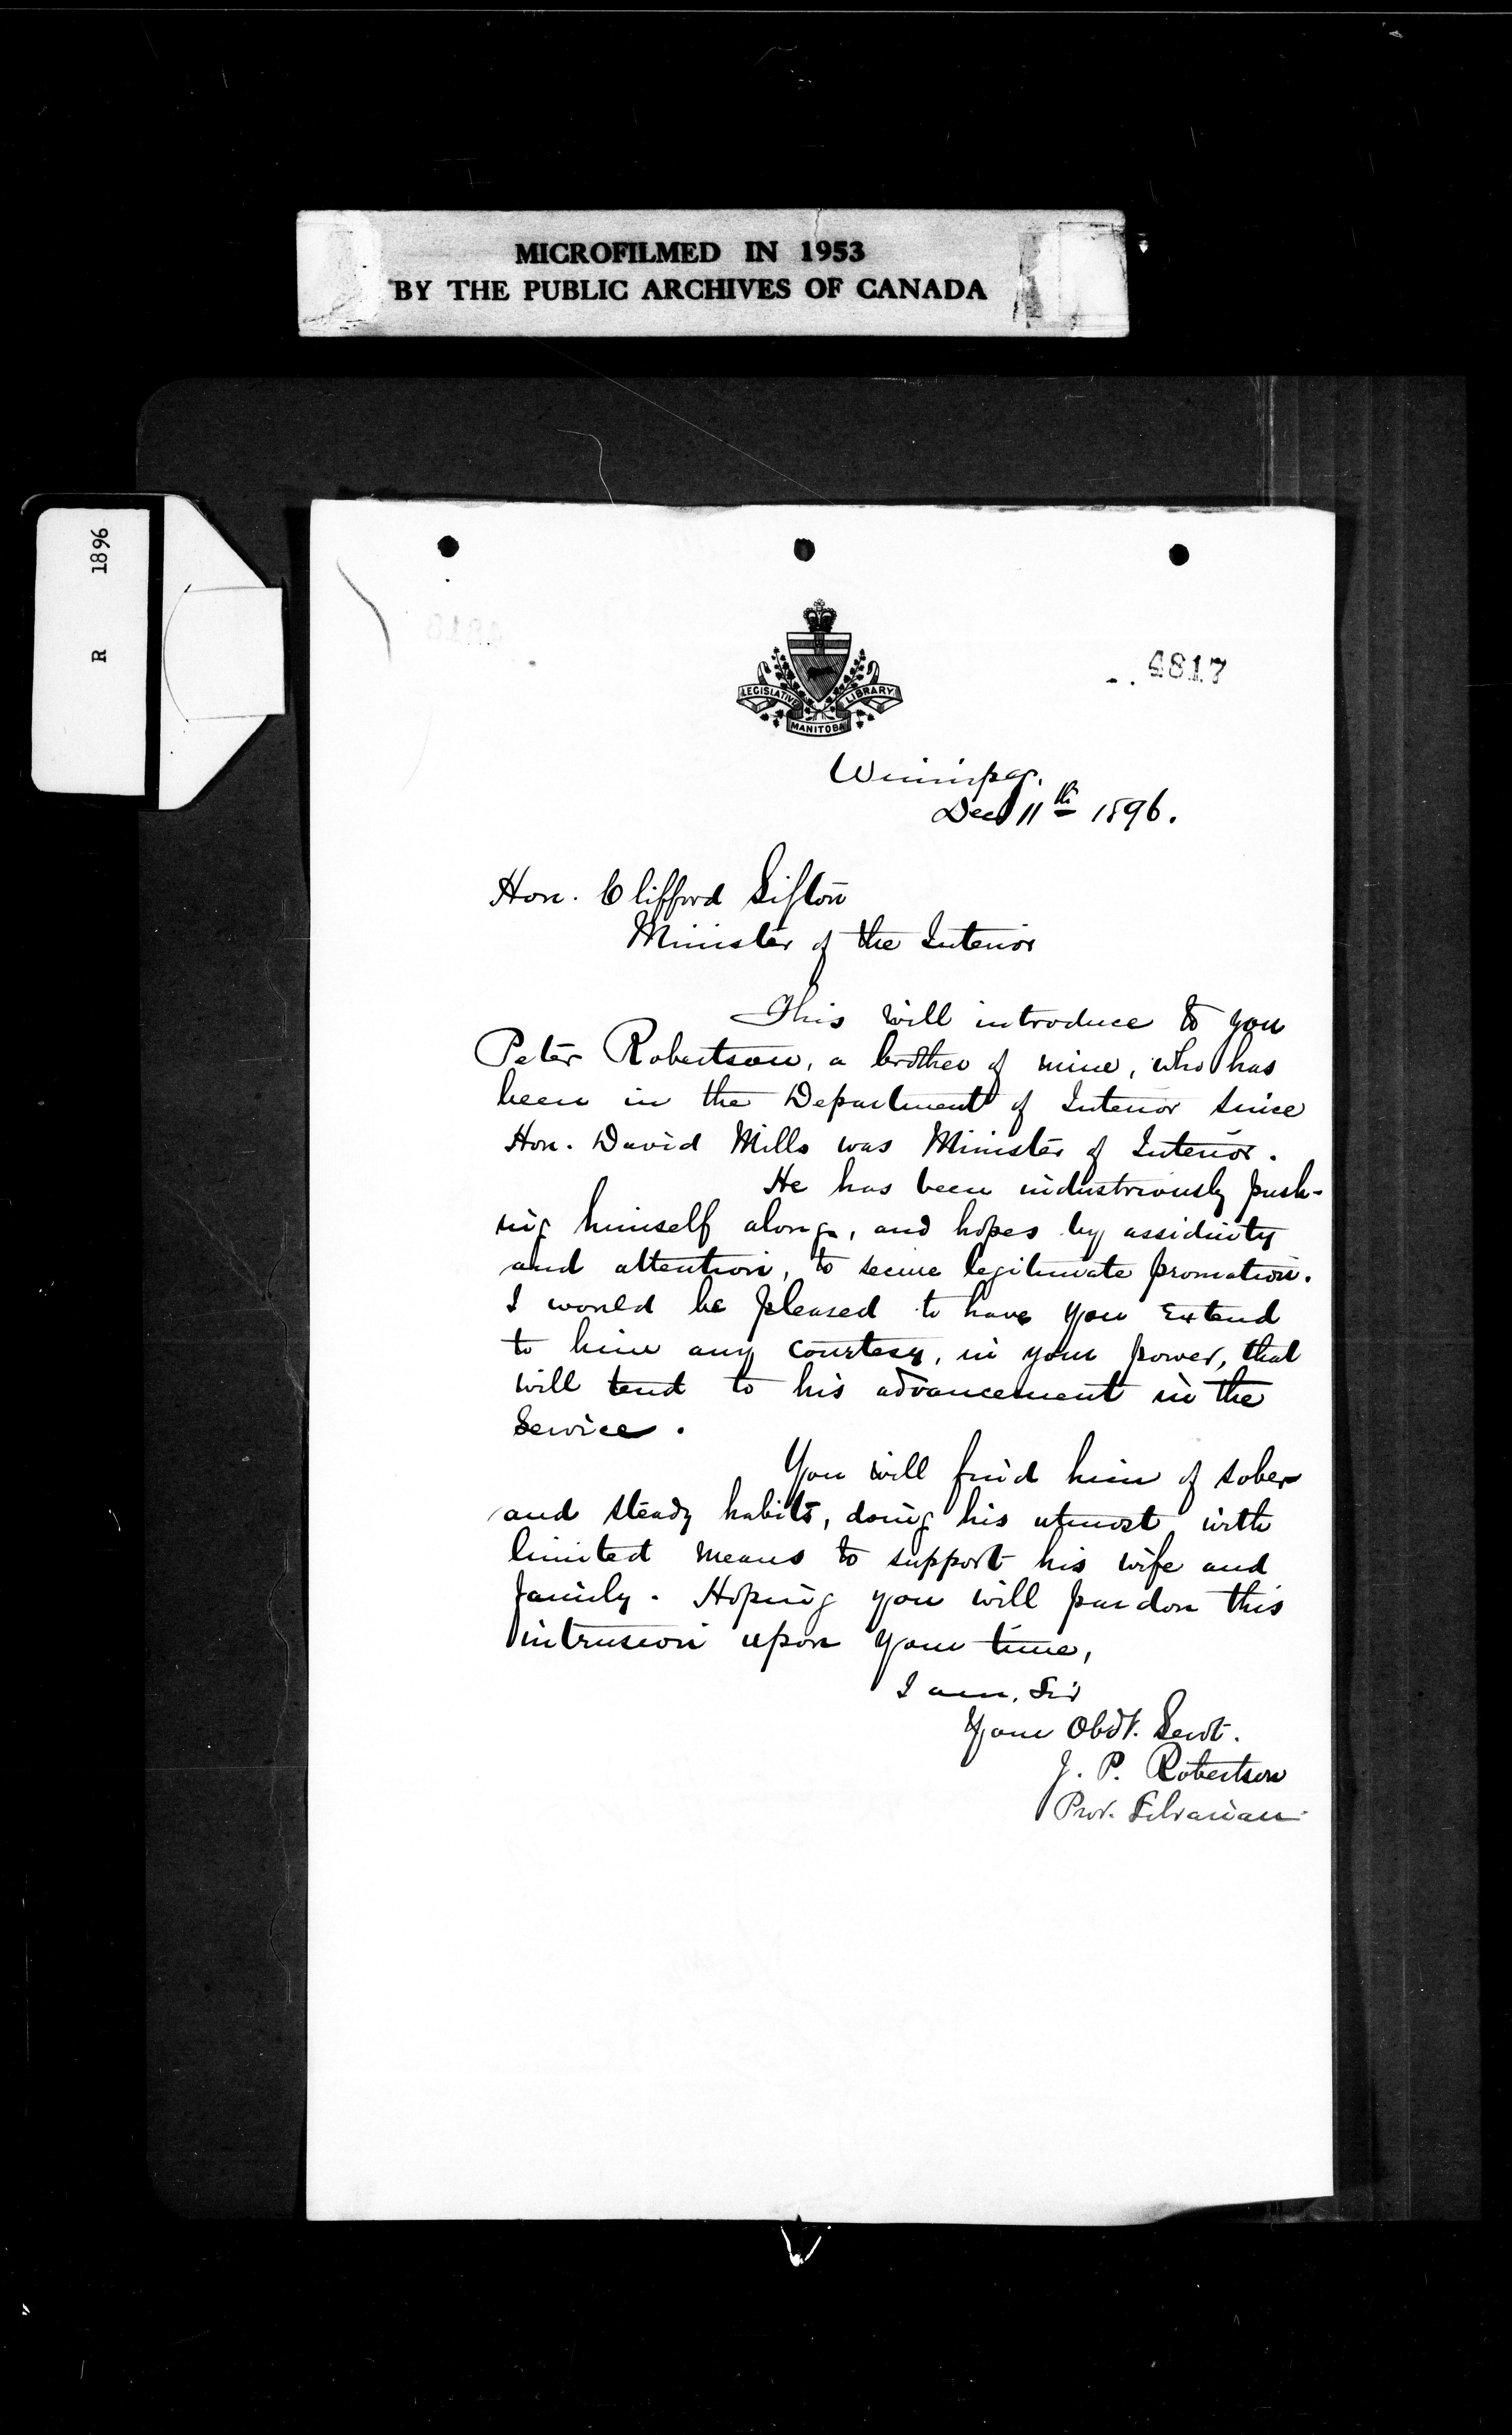 MICROFILMED IN 1953
BY THE PUBLIC ARCHIVES OF CANADA
R 1896
4817
LEGISLATIVE LIBRARY
MANITOBA
Winnipeg.
Dec 11th 1896.
Hon. Clifford Sifton
Minister of the Interior
This will introduce to you
Peter Robertson, a brother of mine, who has
been in the Department of Interior since
Hon. David Mills was Minister of Interior.
He has been industriously push-
ing himself along, and hopes by assiduity
and attention, to secure legitimate promotion.
I would be pleased to have you extend
to him any courtesy, in your power, that
will tend to his advancement in the
Service.
You will find him of sober
and steady habits, doing his utmost with
limited means to support his wife and
family. Hoping you will pardon this
intrusion upon your time,
I am, Sir
Your Obdt. Servt.
J. P. Robertson
Prov. Librarian